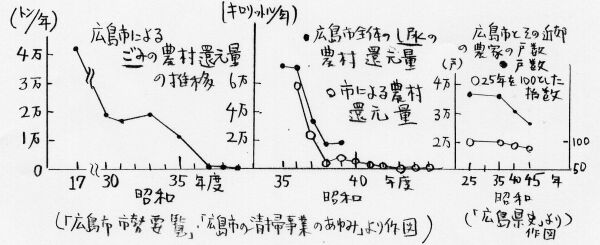 (トン/年)
広島市による
ごみの農村還元量
の推移
4万
3万
2万
1万
0
17 30 35 年度
昭和
(キロリットル/年)
●広島市全体のし尿の
農村還元量
○市による農村
還元量
6万
4万
2万
35 40 年度
昭和
広島市とその近郊
の農家の戸数
●戸数
○25年を100とした
指数
(戸)
4万
3万
2万
1万
100
50
25 35 40 45 年
昭和
(「広島市市勢要覧」・「広島市の清掃事業のあゆみ」より作図)
(「広島県史」より
作図)